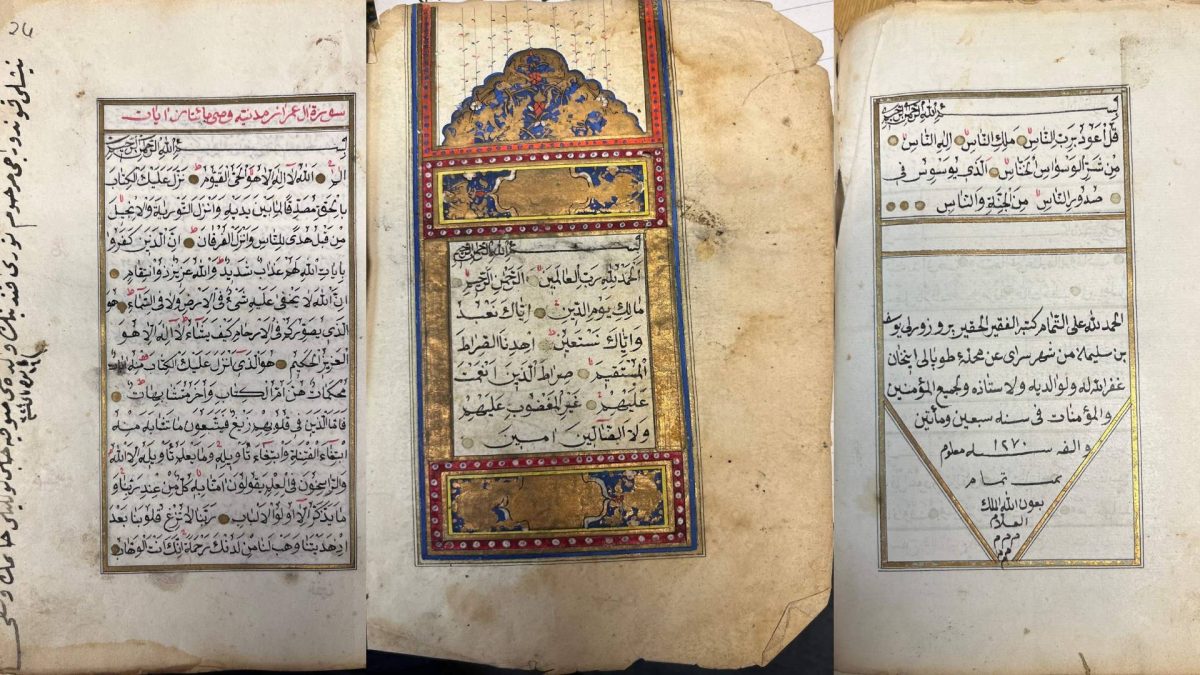 24
سورة ال عمران مدنيه وهى مائتان ايات
بسم الله الرحمن الرحيم
الم الله لا اله الا هو الحى القيوم نزل عليك الكتاب
بالحق مصدقا لما بين يديه وانزل التورية والانجيل
من قبل هدى للناس وانزل الفرقان ان الذين كفروا
بايات الله لهم عذاب شديد والله عزيز ذو انتقام
ان الله لا يخفى عليه شئ فى الارض ولا فى السماء هو
الذى يصوركم فى الارحام كيف يشاء لا اله الا هو
العزيز الحكيم هو الذى انزل عليك الكتاب منه ايات
محكمات هن ام الكتاب واخر متشابهات
فاما الذين فى قلوبهم زيغ فيتبعون ما تشابه منه
ابتغاء الفتنة وابتغاء تاويله وما يعلم تاويله الا الله
والراسخون فى العلم يقولون امنا به كل من عند ربنا و
ما يذكر الا اولوا الالباب ربنا لا تزغ قلوبنا بعد
اذ هديتنا وهب لنا من لدنك رحمة انك انت الوهاب
بسم الله الرحمن الرحيم
الحمد لله رب العالمين الرحمن الرحيم
مالك يوم الدين اياك نعبد
واياك نستعين اهدنا الصراط
المستقيم صراط الذين انعمت
عليهم غير المغضوب عليهم
ولا الضالين امين
بسم الله الرحمن الرحيم
قل اعوذ برب الناس ملك الناس اله الناس
من شر الوسواس الخناس الذى يوسوس فى
صدور الناس من الجنة والناس
الحمد لله على التمام كتبه الفقير الحقير يوسف
بن سليمان من شهر سراى عن محمد
غفر الله له ولوالديه ولاستاذه ولجميع المؤمنين
والمؤمنات فى سنه سبعين ومأتين
والف سنه ١٢٧٠ معلوم
تمت تمام
بعون الله الملك
العلام